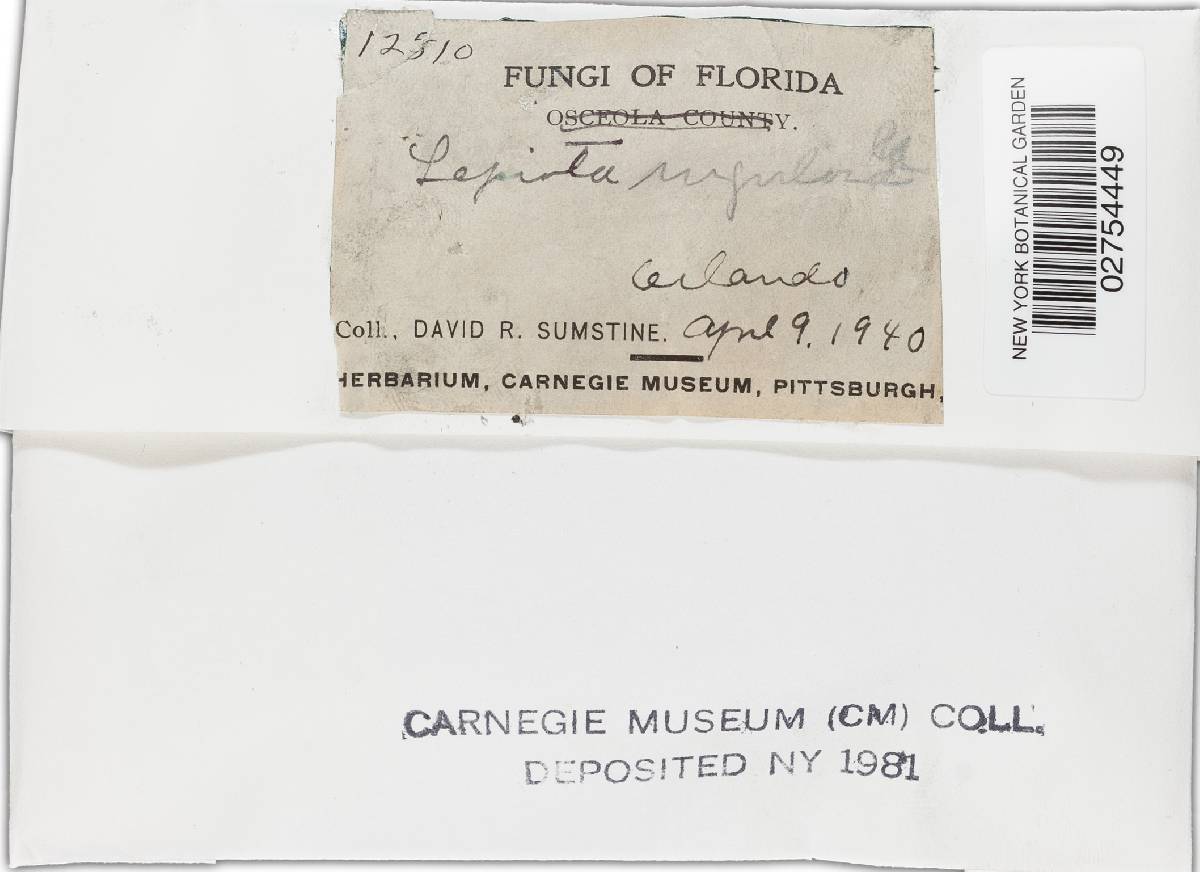 12510
FUNGI OF FLORIDA
OSCEOLA COUNTY.
Lepiota rugulosa Pk
Orlando,
Coll., DAVID R. SUMSTINE. April 9, 1940
HERBARIUM, CARNEGIE MUSEUM, PITTSBURGH,
NEW YORK BOTANICAL GARDEN
02754449
CARNEGIE MUSEUM (CM) COLL.
DEPOSITED NY 1981